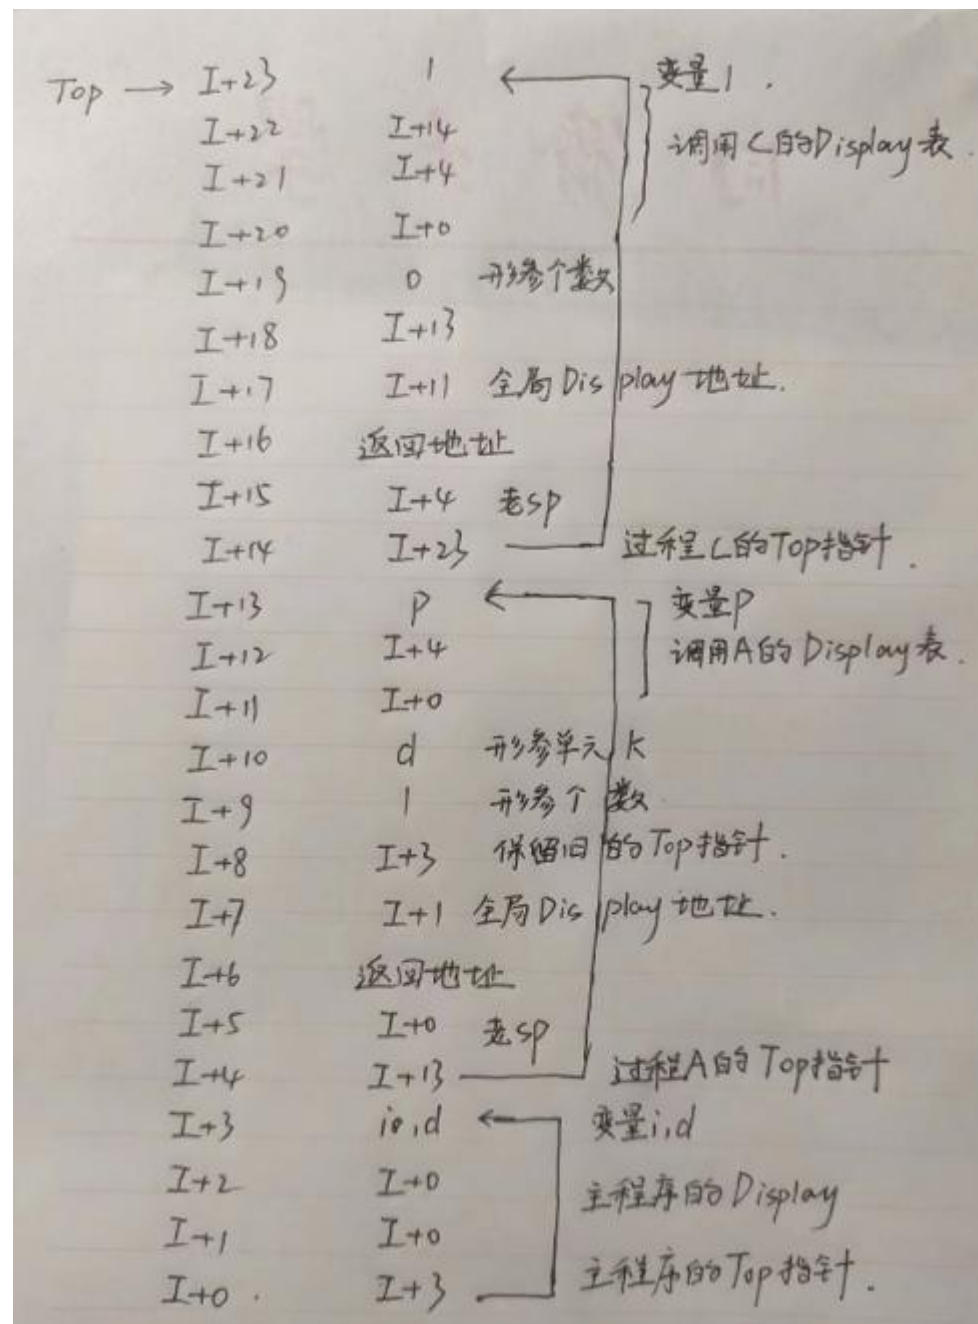 Top → I+23 1 变量1.
I+22 I+14 调用C的Display表.
I+21 I+4
I+20 I+0
I+19 0 形参个数
I+18 I+13
I+17 I+11 全局Display地址.
I+16 返回地址
I+15 I+4 老sp
I+14 I+23 过程C的Top指针.
I+13 P 变量P
I+12 I+4 调用A的Display表.
I+11 I+0
I+10 d 形参单元K
I+9 1 形参个数
I+8 I+3 保留旧的Top指针.
I+7 I+1 全局Display地址.
I+6 返回地址
I+5 I+0 老sp
I+4 I+13 过程A的Top指针
I+3 i,d 变量i,d
I+2 I+0 主程序的Display
I+1 I+0
I+0. I+3 主程序的Top指针.